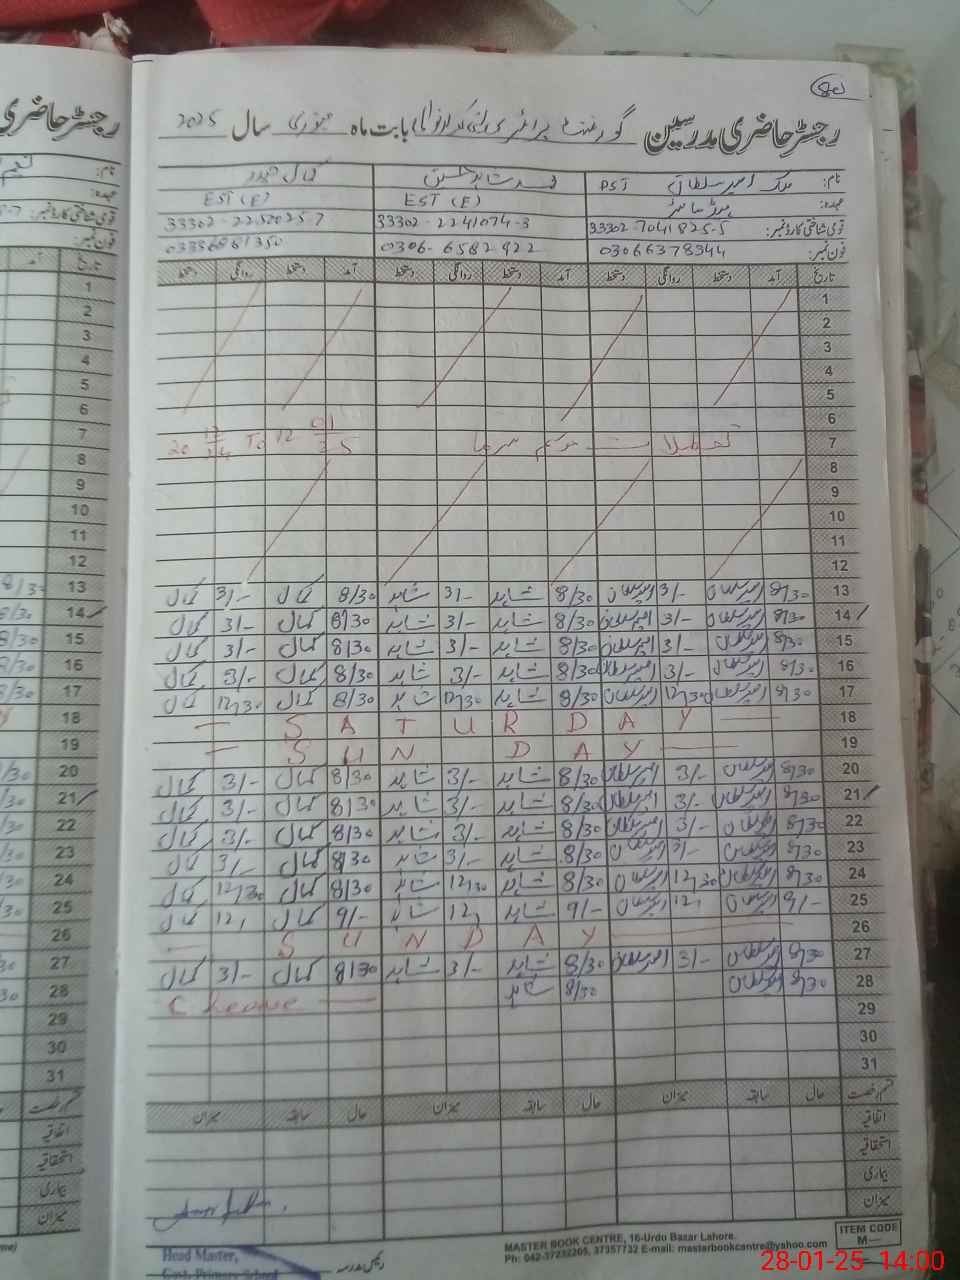 80
رجسٹر حاضری مدرسین گورنمنٹ پرائمری بابت ماہ جنوری سال 2025
نام: ملک امیر سلطان PST
کمال حیدر
عہدہ: ہیڈ ماسٹر EST (E) EST (E)
قومی شناختی کارڈ نمبر: 33302-7041825-5 33302-2241074-3 33302-2252025-7
فون نمبر: 03066378344 0306-6582922 03336981350
تاریخ آمد دستخط روانگی دستخط آمد دستخط روانگی دستخط آمد دستخط روانگی دستخط
1
2
3
4
5
6
7 تعطیلات موسم سرما 20 12/24 To 12 01/25
8
9
10
11
12
13 8/30 امیر سلطان 3/- امیر سلطان 8/30 شاہد 3/- شاہد 8/30 کمال 3/- کمال
14 8/30 امیر سلطان 3/- امیر سلطان 8/30 شاہد 3/- شاہد 8/30 کمال 3/- کمال
15 8/30 امیر سلطان 3/- امیر سلطان 8/30 شاہد 3/- شاہد 8/30 کمال 3/- کمال
16 8/30 امیر سلطان 3/- امیر سلطان 8/30 شاہد 3/- شاہد 8/30 کمال 3/- کمال
17 8/30 امیر سلطان 12/30 امیر سلطان 8/30 شاہد 12/30 شاہد 8/30 کمال 12/30 کمال
18 SATURDAY
19 SUNDAY
20 8/30 امیر سلطان 3/- امیر سلطان 8/30 شاہد 3/- شاہد 8/30 کمال 3/- کمال
21 8/30 امیر سلطان 3/- امیر سلطان 8/30 شاہد 3/- شاہد 8/30 کمال 3/- کمال
22 8/30 امیر سلطان 3/- امیر سلطان 8/30 شاہد 3/- شاہد 8/30 کمال 3/- کمال
23 8/30 امیر سلطان 3/- امیر سلطان 8/30 شاہد 3/- شاہد 8/30 کمال 3/- کمال
24 8/30 امیر سلطان 12/30 امیر سلطان 8/30 شاہد 12/30 شاہد 8/30 کمال 12/30 کمال
25 9/- امیر سلطان 12/ امیر سلطان 9/- شاہد 12/ شاہد 9/- کمال 12/ کمال
26 SUNDAY
27 8/30 امیر سلطان 3/- امیر سلطان 8/30 شاہد 3/- شاہد 8/30 کمال 3/- کمال
28 8/30 امیر سلطان 8/30 شاہد C Leave
29
30
31
قسم رخصت حال سابقہ میزان حال سابقہ میزان حال سابقہ میزان
اتفاقیہ
استحقاقیہ
بیماری
میزان
Head Master,
Govt. Primary School
رئیس مدرسہ
MASTER BOOK CENTRE, 16-Urdu Bazar Lahore.
Ph: 042-37232205, 37357732 E-mail: masterbookcentre@yahoo.com
ITEM CODE
M—
28-01-25 14:00